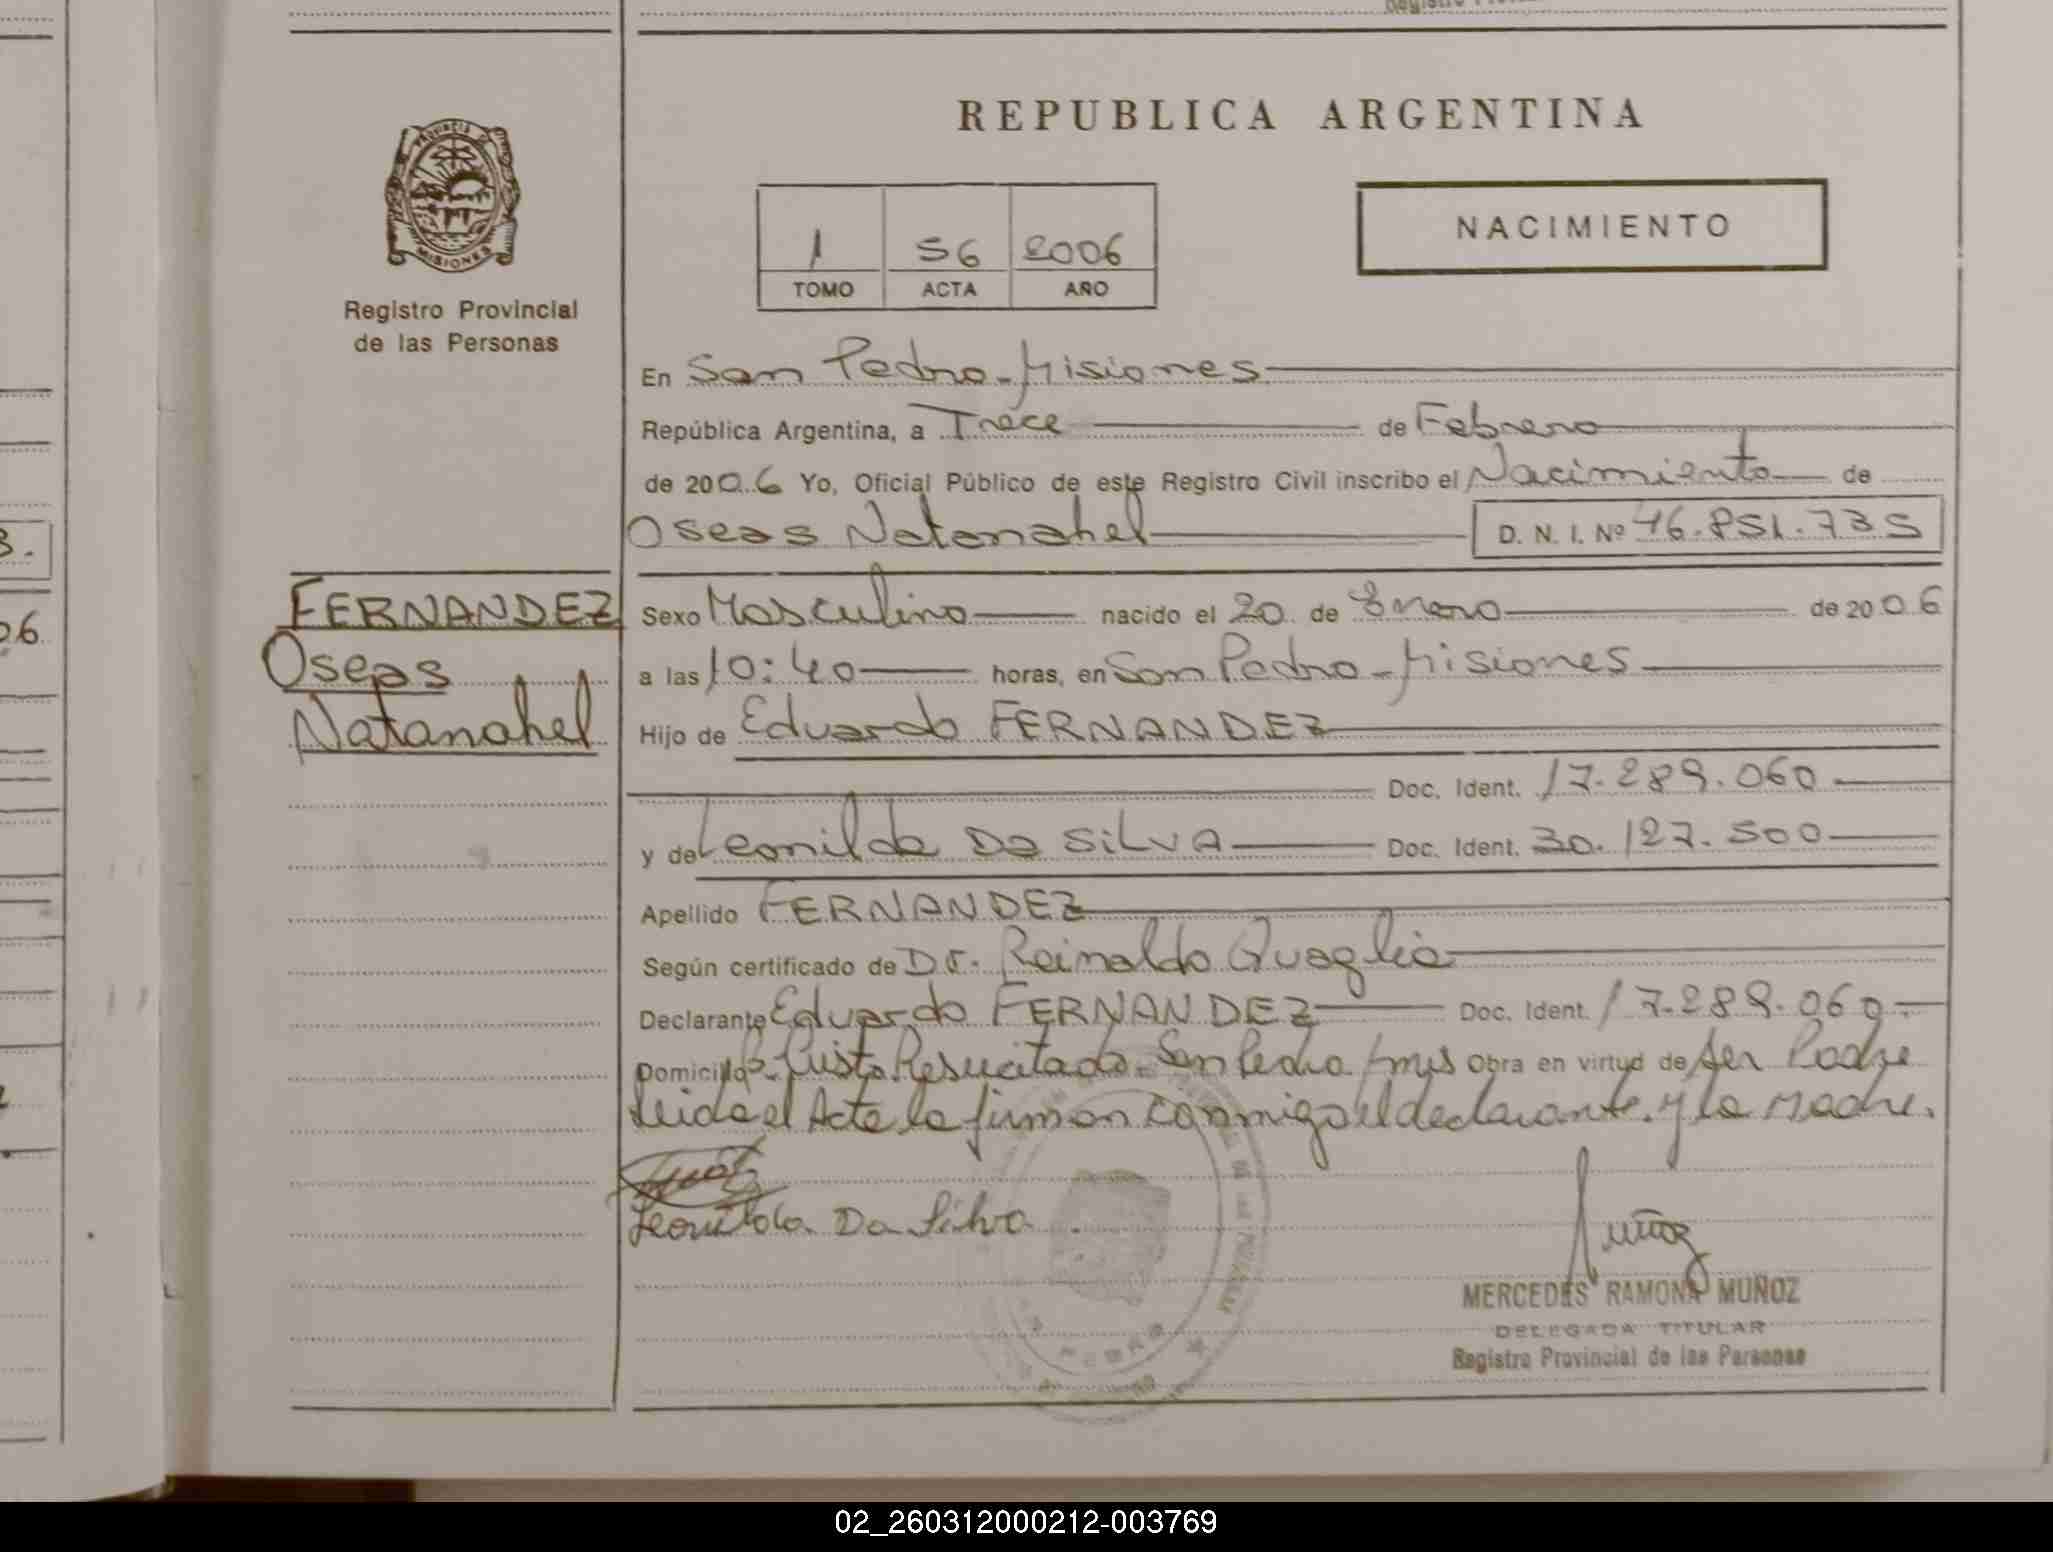 REPUBLICA ARGENTINA
PROVINCIA DE MISIONES
Registro Provincial
de las Personas
NACIMIENTO
1 56 2006
TOMO ACTA AÑO
En San Pedro - Misiones
República Argentina, a Trece de Febrero
de 2006 Yo, Oficial Público de este Registro Civil inscribo el Nacimiento de
Oseas Natanahel D. N. I. Nº 46.851.735
FERNANDEZ
Oseas
Natanahel
Sexo Masculino nacido el 20 de Enero de 2006
a las 10:40 horas, en San Pedro - Misiones
Hijo de Eduardo FERNANDEZ
Doc. Ident. 17.289.060
y de Leonilda Da SiLVA Doc. Ident. 30.127.500
Apellido FERNANDEZ
Según certificado de Dr. Reinaldo Quaglia
Declarante Eduardo FERNANDEZ Doc. Ident. 17.289.060
Domicilio Resucitado - San Pedro Mns Obra en virtud de ser Padre
Leida el Acta la firman conmigo el declarante. y la Madre.
Leonilda Da Silva
Muñoz
MERCEDES RAMONA MUÑOZ
DELEGADA TITULAR
Registro Provincial de las Personas
02_260312000212-003769